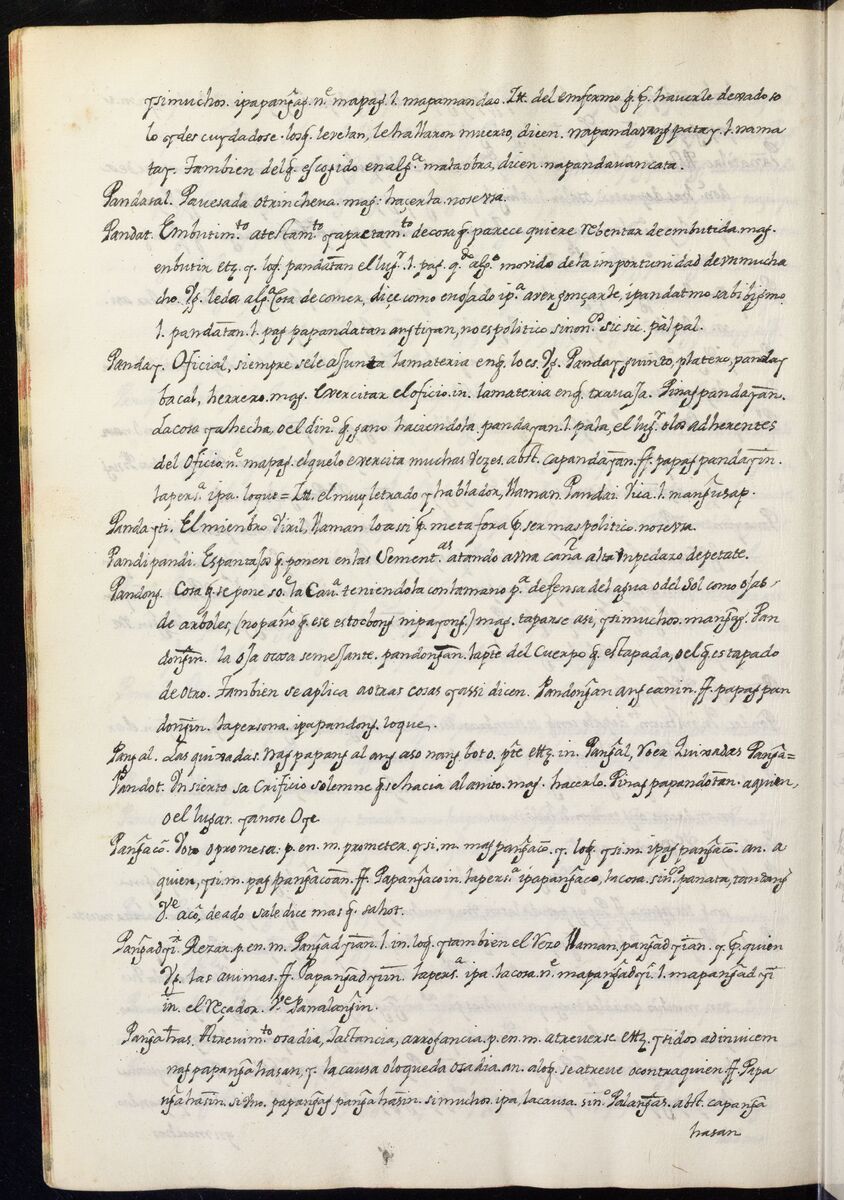 y si muchos. ipapang̃ag. n.e mapag. l. mapamandao. It. del enfermo q̃. p̃. haverle dexado so
lo y descuydadose. losq̃. levelan, le hallaron muerto, dicen. napandavang patay. l. nama
tay. Tambien delq̃. escogido en alg.a mala obra, dicen. napandavan cata.
Pandasal. Pavesada o trinchera. mag: haçerla. no se usa.
Pandat. Embutim.to atestam.to y apretam.to de cosa q̃. parece quiere rebentar de embutida. mag.
enbutir etz. y. loq̃. pandatan el lug.r l. pag. q.do alg.o movido de la importunidad de un mucha
cho. Vg. le da alg.a cosa de comer, diçe como enojado ip.a avergonçarle, ipandat mo sa bibig mo.
l. pandatan. l. pag papandatan ang tiyan, no es politico sinon.o sic sic. palpal.
Panday. Oficial, siempre se le asunta la materia en q̃. lo es. Vg. Panday guinto, platero, panday
bacal, herrero. mag. Exercitar el oficio. in. la materia en q̃. travaja. Pinagpandayan.
la cosa ya hecha, o el din.o q̃. gano haciendola. pandayan. l. pala, el lug.r o los adherentes
del Oficio. n.e mapag. el q̃ lo exercita muchas vezes. abst. capandayan. ff. papagpandayin.
la pers.a ipa. loque = It. el muy letrado y hablador, llaman. Pandai Vica. l. mang̃usap.
Panday ti. El miembro Viril, llaman lo assi p̃. metafora p̃. ser mas politico. no se usa.
Pandipandi. Espantajos q̃. ponen en las Sement.as atando a una caña alta un pedazo de petate.
Pandong. Cosa q̃. se pone so.e la Cav.a teniendola con la mano p.a defensa del agua o del Sol como ojas
de arboles, (no paño q̃. ese es tocbong ni payong.) mag. taparse asi, y si muchos. mang̃ag. Pan
dong̃in. la oja o cosa semejante. pandong̃an. la p̃te del Cuerpo q̃. es tapada, o el q̃. es tapado
de otro. Tambien se aplica a otras cosas y assi dicen. Pandong̃an ang canin. ff. papagpan
dong̃in. la persona. ipapandong. loque.
Pang al. Las quixadas. Nag papang al ang aso nang boto. p̃te etz. in. Pang̃al, Roer Quixadas Pang̃a=
Pandot. Un sierto sacrificio solemne q̃ se hacia al anito. mag. hacerlo. Pinagpapandotan. a quien,
o el lugar. ya no se Oye
Pang̃aco. Voto o promesa: p. en. m. prometer. y si. m. mag pang̃aco. y. loq̃. y si. m. ipag pang̃aco. an. a
quien, y si. m. pag pang̃acoan. ff. Papang̃acoin. la pers.a ipapang̃aco, la cosa. sin.o panata, tandang
V.e aco, de ado sale dice mas q̃. sahot.
Pang̃adyi. Rezar. p. en. m. Pang̃adyian. l. in. loq̃. y tambien el Rezo llaman, pang̃adyian. y. p̃. quien
Vg. las animas. ff. Papang̃adyiin. la pers.a ipa. la cosa. n.e mapang̃adyi. l. mapang̃adyi
in. el reçador. V.e Panalang̃in.
Pang̃ahas. Atrevim.to osadia, Jactancia, arrogancia. p. en. m. atreverse. etz. y si dos ad invicem
nag papang̃ahasan, y. la causa o lo que da osadia. an. a loq̃. se atreve o contra quien ff. Papa
ng̃ahasin. si mo. papang̃ag pang̃ahasin. si muchos. ipa, la causa. sin.o Palang̃as. abst. capang̃a
hasan